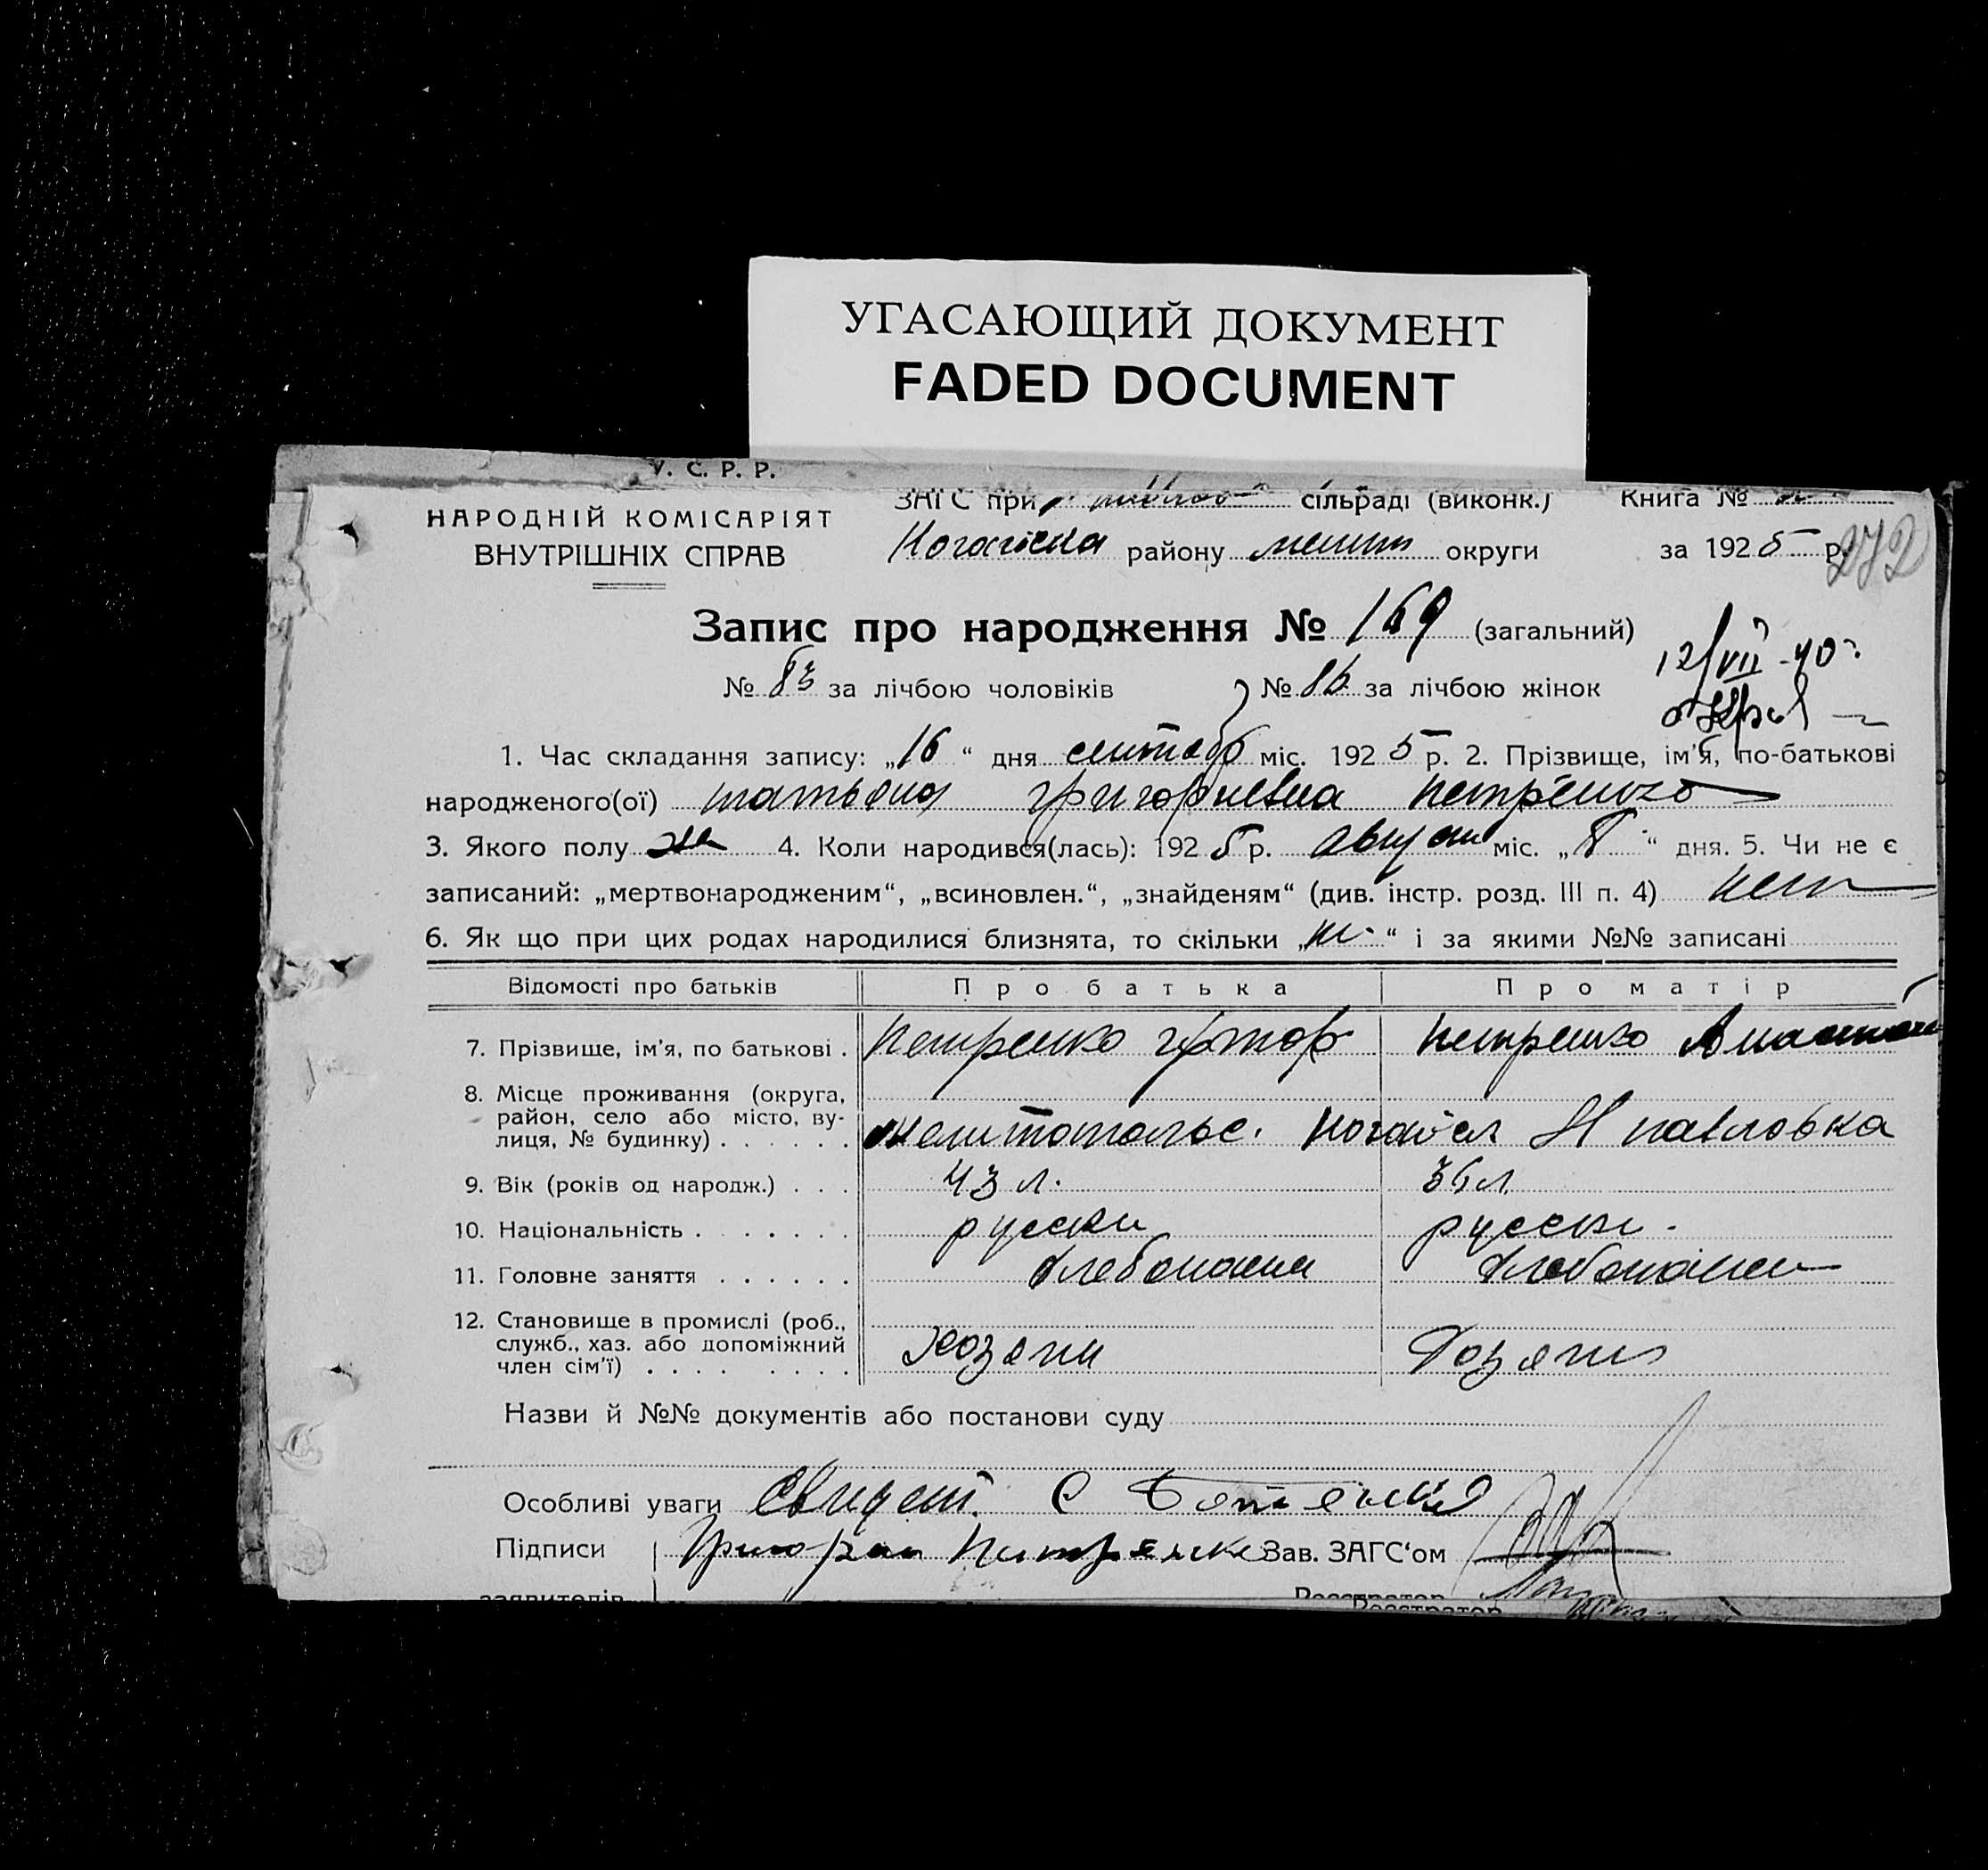 УГАСАЮЩИЙ ДОКУМЕНТ
FADED DOCUMENT
У. С. Р. Р.
НАРОДНІЙ КОМІСАРІЯТ
ВНУТРІШНІХ СПРАВ
ЗАГС при сільраді (виконк.) Книга №
району округи за 1925 р.
272
Запис про народження № 169 (загальний)
№ 83 за лічбою чоловіків № 86 за лічбою жінок
12/VII-40 г.
1. Час складання запису: „16“ дня сентабр міс. 1925 р. 2. Прізвище, ім'я, по-батькові
народженого(ої) татьяна григориевна петренко
3. Якого полу же 4. Коли народився(лась): 1925 р. август міс. „8“ дня. 5. Чи не є
записаний: „мертвонародженим“, „всиновлен.“, „знайденям“ (див. інстр. розд. III п. 4) нет
6. Як що при цих родах народилися близнята, то скільки „ “ і за якими №№ записані
Відомості про батьків Про батька Про матір
7. Прізвище, ім'я, по батькові . Петренко Петренко
8. Місце проживання (округа,
район, село або місто, ву-
лиця, № будинку) . . . . . . Н павловка
9. Вік (років од народж.) . . . 43 л. 36 л.
10. Національність . . . . . . . русски русски.
11. Головне заняття . . . . . . хлебопаши хлебопаши
12. Становище в промислі (роб.,
служб., хаз. або допоміжний
член сім'ї) . . . . . . . . хозяин
Назви й №№ документів або постанови суду
Особливі уваги свидет. с
Підписи Григорий Петренко Зав. ЗАГС'ом
заявителів Реєстратор
Реєстратор